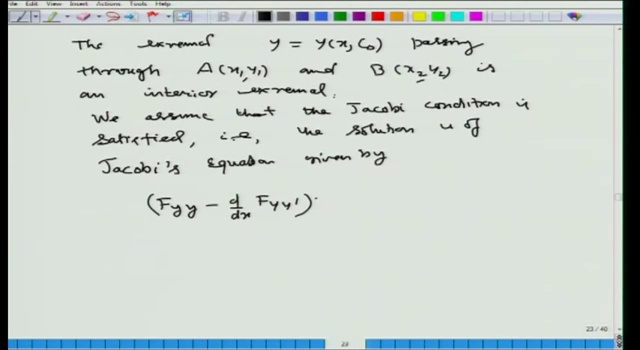 Edit View Insert Actions Tools Help
The extremal y = y(x, C₀) passing
through A(x₁, y₁) and B(x₂ y₂) is
an interior extremal.
We assume that the Jacobi condition is
satisfied, i.e., the solution u of
Jacobi's Equation given by
(Fyy - d/dx Fyy')
23 / 40
23